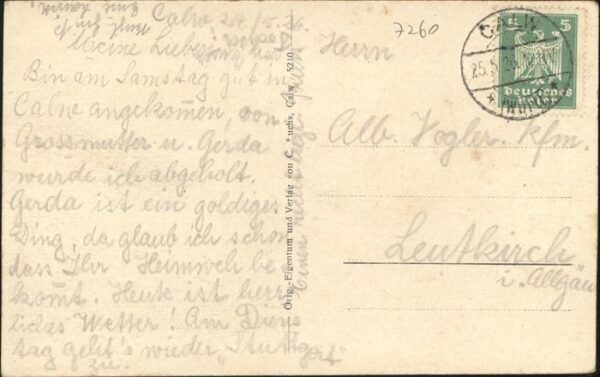 Calw 24/5.26.
Meine Lieben!
Bin am Samstag gut in
Calw angekom̅en, von
Grossmutter u. Gerda
wurde ich abgeholt.
Gerda ist ein goldiges
Ding, da glaub ich schon
dass Ihr Heimweh be
kom̅t. Heute ist herr
liches Wetter! Am Diens
tag geht's wieder „Stuttgart"
zu.
Orig.-Eigentum und Verlag von C. Fuchs, Calw. 5210
7260
CALW
25.5.26
(WÜRTT)
5 5
Deutsches
Herrn
Alb. Vogler, kfm.
Leutkirch
i. Allgäu